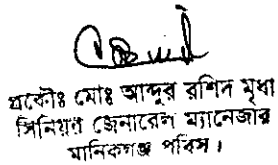 প্রকৌঃ মোঃ আব্দুর রশিদ মৃধা
সিনিয়র জেনারেল ম্যানেজার
মানিকগঞ্জ পবিস।